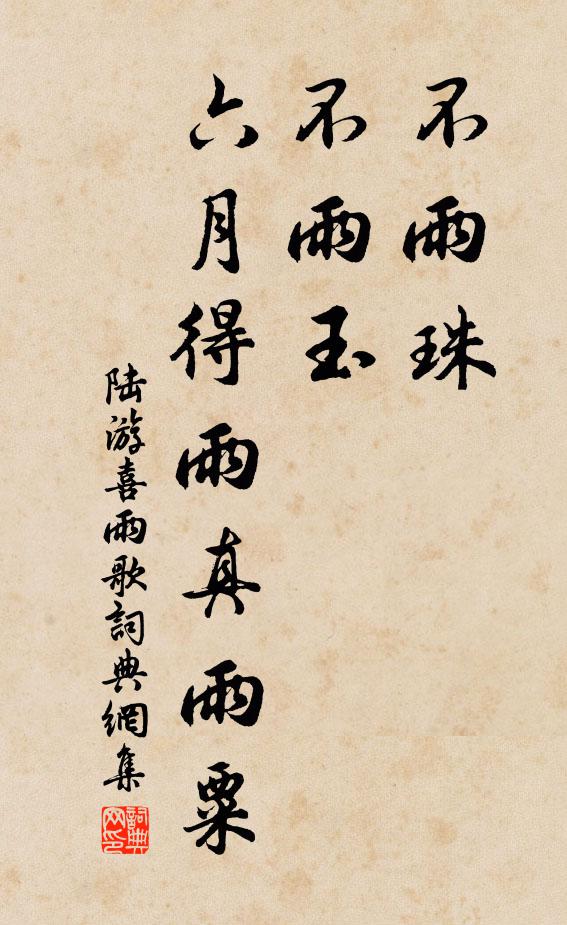 不雨珠
不雨玉
六月得雨真雨粟
陆游喜雨歌詞典網集
詞典网印